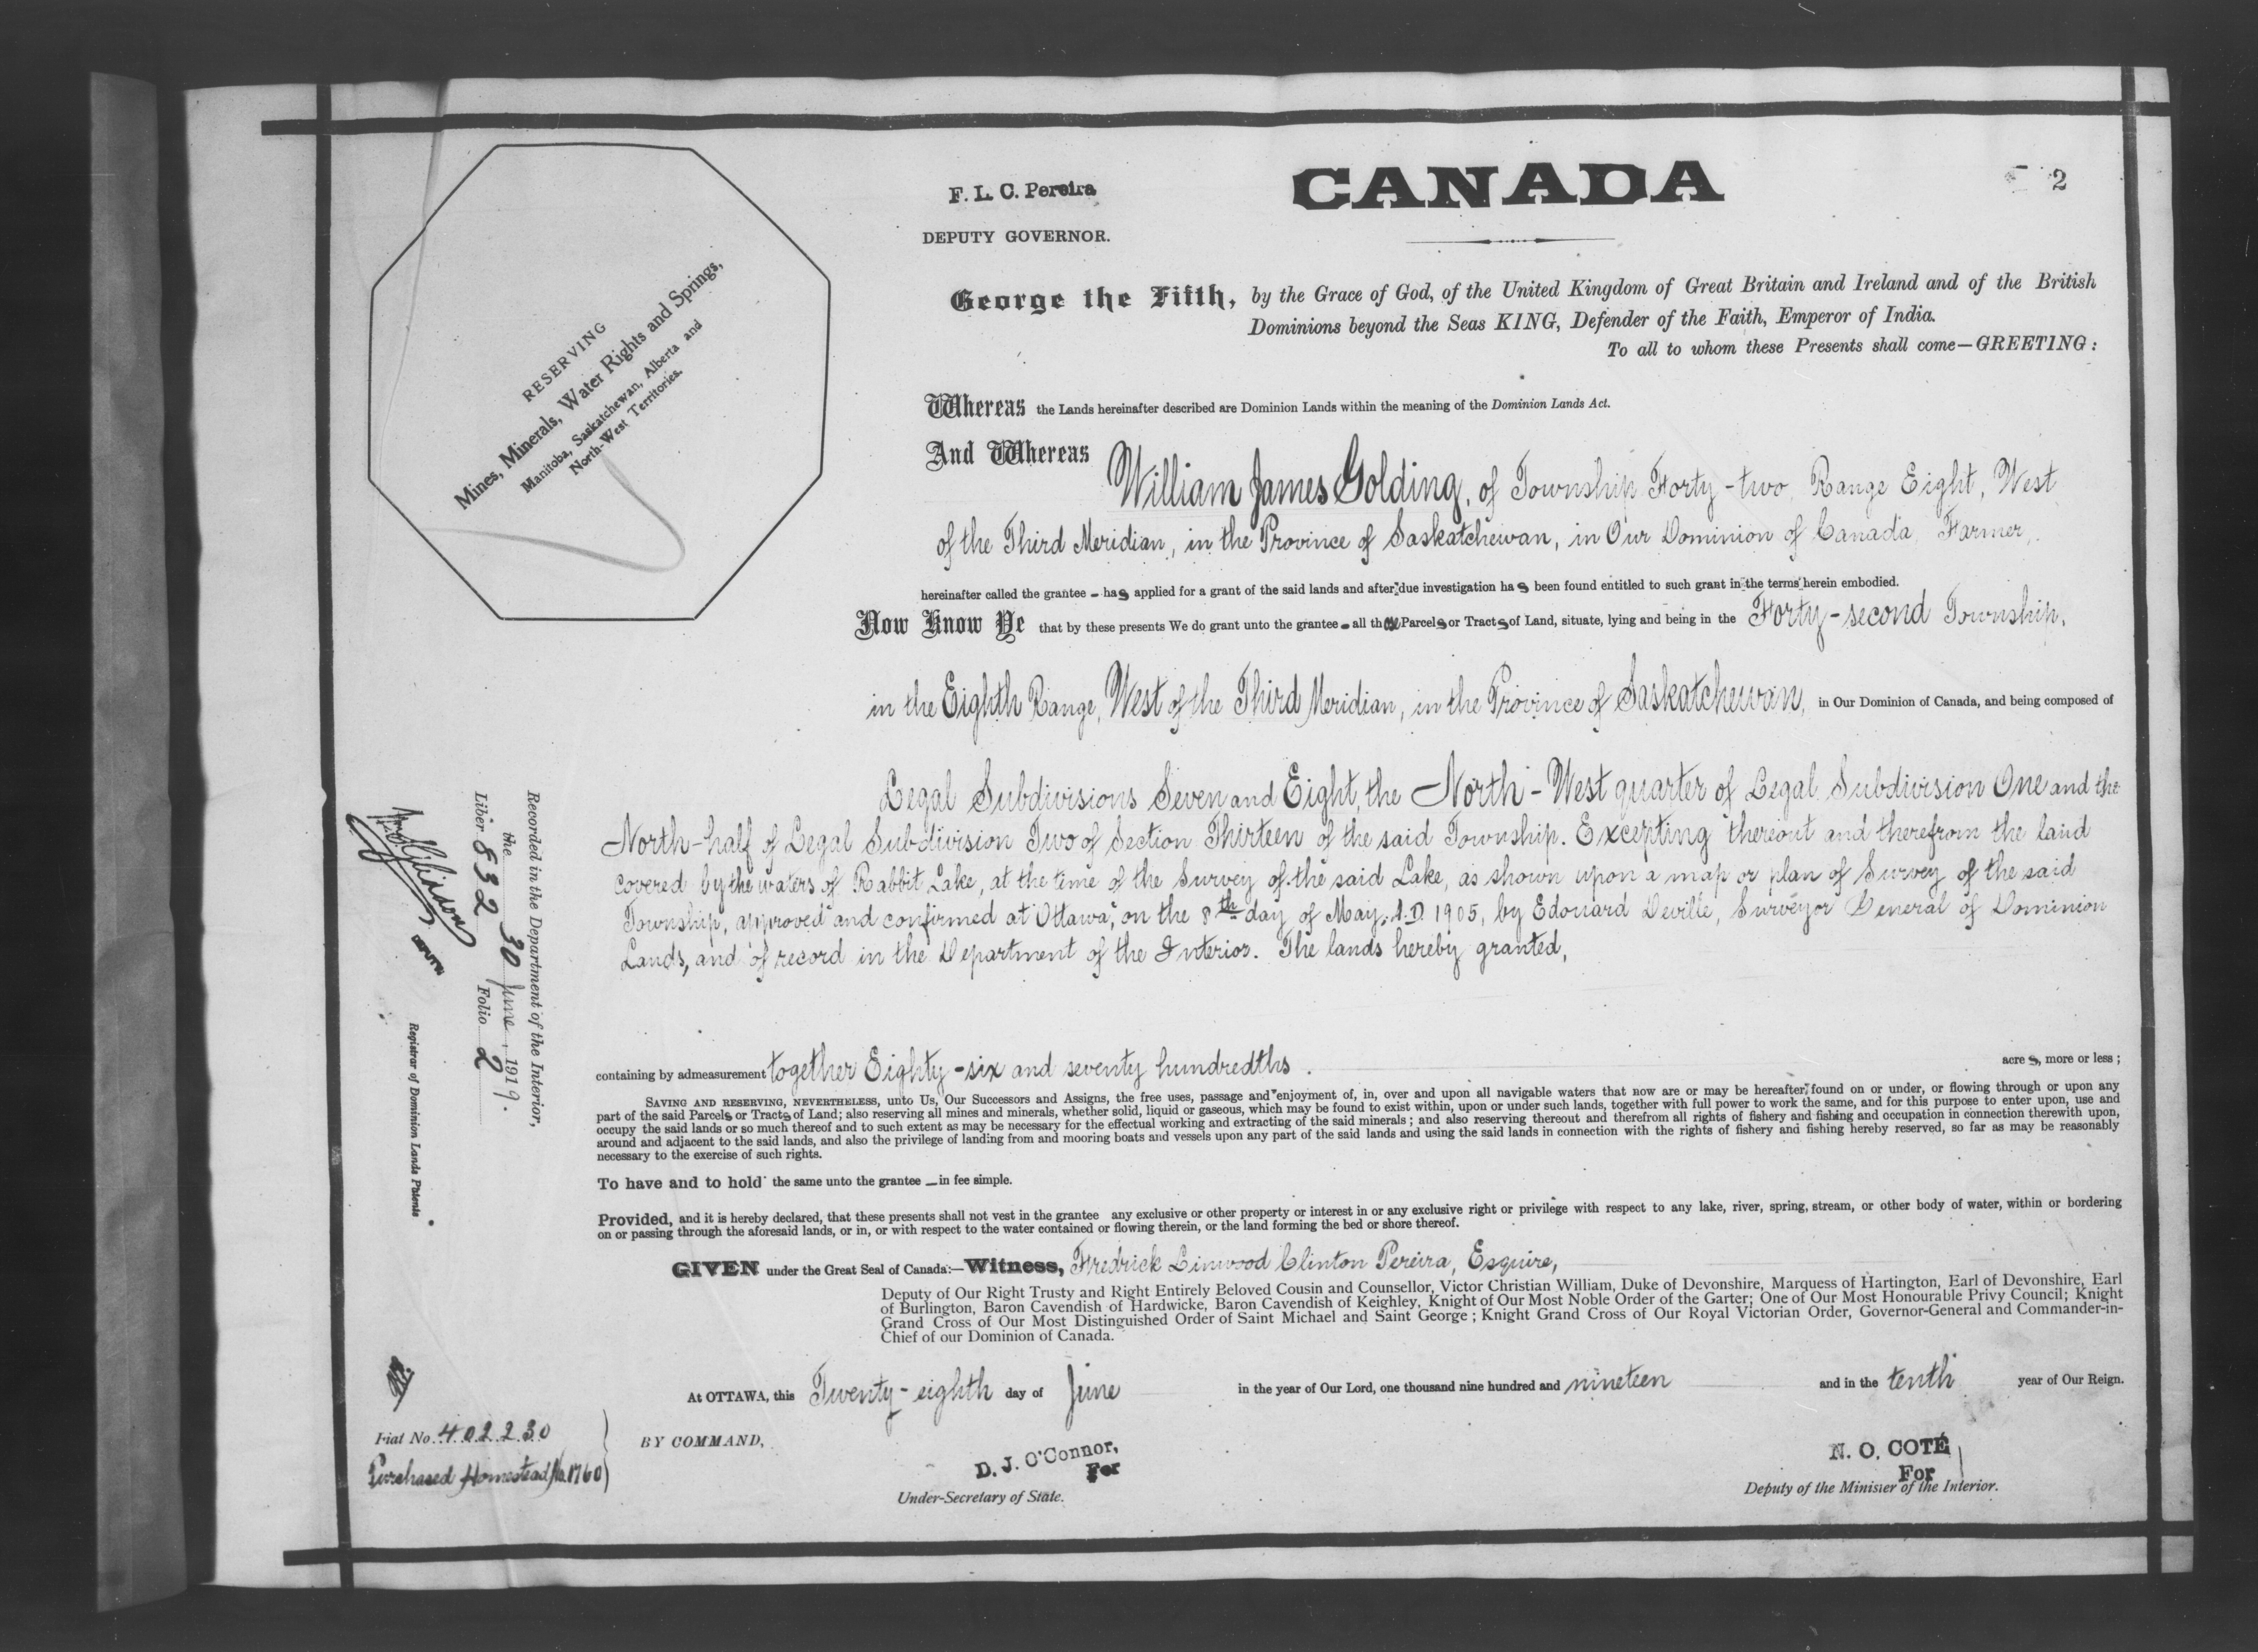 2
F. L. C. Pereira
DEPUTY GOVERNOR.
CANADA
RESERVING
Mines, Minerals, Water Rights and Springs,
Manitoba, Saskatchewan, Alberta and
North-West Territories.
George the Fifth, by the Grace of God, of the United Kingdom of Great Britain and Ireland and of the British
Dominions beyond the Seas KING, Defender of the Faith, Emperor of India.
To all to whom these Presents shall come—GREETING:
Whereas the Lands hereinafter described are Dominion Lands within the meaning of the Dominion Lands Act.
And Whereas William James Golding, of Township Forty-two, Range Eight, West
of the Third Meridian, in the Province of Saskatchewan, in Our Dominion of Canada, Farmer,
hereinafter called the grantee - has applied for a grant of the said lands and after due investigation has been found entitled to such grant in the terms herein embodied.
Now Know Ye that by these presents We do grant unto the grantee - all those Parcels or Tracts of Land, situate, lying and being in the Forty-second Township,
in the Eighth Range, West of the Third Meridian, in the Province of Saskatchewan, in Our Dominion of Canada, and being composed of
Legal Subdivisions Seven and Eight, the North-West quarter of Legal Subdivision One and the
North-half of Legal Subdivision Two of Section Thirteen of the said Township. Excepting thereout and therefrom the land
covered by the waters of Rabbit Lake, at the time of the Survey of the said Lake, as shown upon a map or plan of Survey of the said
Township, approved and confirmed at Ottawa, on the 8th day of May, A.D. 1905, by Edouard Deville, Surveyor General of Dominion
Lands, and of record in the Department of the Interior. The lands hereby granted,
containing by admeasurement together Eighty-six and seventy hundredths. acres, more or less;
SAVING AND RESERVING, NEVERTHELESS, unto Us, Our Successors and Assigns, the free uses, passage and enjoyment of, in, over and upon all navigable waters that now are or may be hereafter found on or under, or flowing through or upon any
part of the said Parcels or Tracts of Land; also reserving all mines and minerals, whether solid, liquid or gaseous, which may be found to exist within, upon or under such lands, together with full power to work the same, and for this purpose to enter upon, use and
occupy the said lands or so much thereof and to such extent as may be necessary for the effectual working and extracting of the said minerals; and also reserving thereout and therefrom all rights of fishery and fishing and occupation in connection therewith upon,
around and adjacent to the said lands, and also the privilege of landing from and mooring boats and vessels upon any part of the said lands and using the said lands in connection with the rights of fishery and fishing hereby reserved, so far as may be reasonably
necessary to the exercise of such rights.
To have and to hold the same unto the grantee - in fee simple.
Provided, and it is hereby declared, that these presents shall not vest in the grantee any exclusive or other property or interest in or any exclusive right or privilege with respect to any lake, river, spring, stream, or other body of water, within or bordering
on or passing through the aforesaid lands, or in, or with respect to the water contained or flowing therein, or the land forming the bed or shore thereof.
GIVEN under the Great Seal of Canada:—Witness, Fredrick Linwood Clinton Pereira, Esquire,
Deputy of Our Right Trusty and Right Entirely Beloved Cousin and Counsellor, Victor Christian William, Duke of Devonshire, Marquess of Hartington, Earl of Devonshire, Earl
of Burlington, Baron Cavendish of Hardwicke, Baron Cavendish of Keighley, Knight of Our Most Noble Order of the Garter; One of Our Most Honourable Privy Council; Knight
Grand Cross of Our Most Distinguished Order of Saint Michael and Saint George; Knight Grand Cross of Our Royal Victorian Order, Governor-General and Commander-in-
Chief of our Dominion of Canada.
At OTTAWA, this Twenty-eighth day of June in the year of Our Lord, one thousand nine hundred and nineteen and in the tenth year of Our Reign.
BY COMMAND,
D. J. O'Connor,
For
Under-Secretary of State.
N. O. COTÉ
For
Deputy of the Minister of the Interior.
Recorded in the Department of the Interior,
the 30 June, 1919.
Liber 832 Folio 2
DEPUTY
Registrar of Dominion Lands Patents
Fiat No. 402230
Purchased Homestead No. 1760